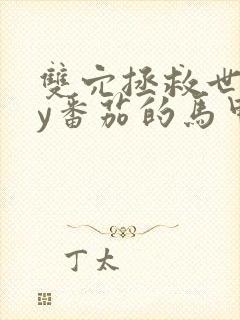 雙穴拯救世
y番茄的馬甲
丁太